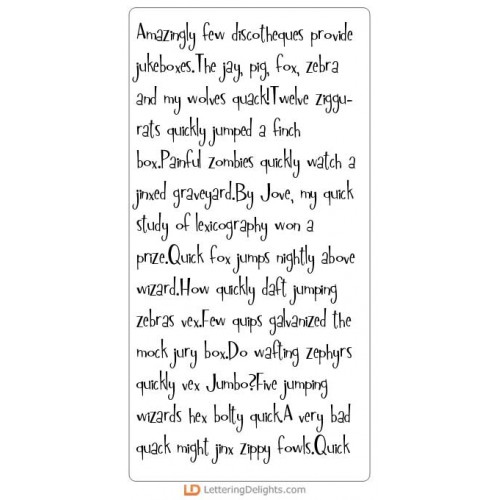 Amazingly few discotheques provide
jukeboxes.The jay, pig, fox, zebra
and my wolves quack!Twelve ziggu-
rats quickly jumped a finch
box.Painful zombies quickly watch a
jinxed graveyard.By Jove, my quick
study of lexicography won a
prize.Quick fox jumps nightly above
wizard.How quickly daft jumping
zebras vex.Few quips galvanized the
mock jury box.Do wafting zephyrs
quickly vex Jumbo?Five jumping
wizards hex bolty quick.A very bad
quack might jinx zippy fowls.Quick
LD LetteringDelights.com